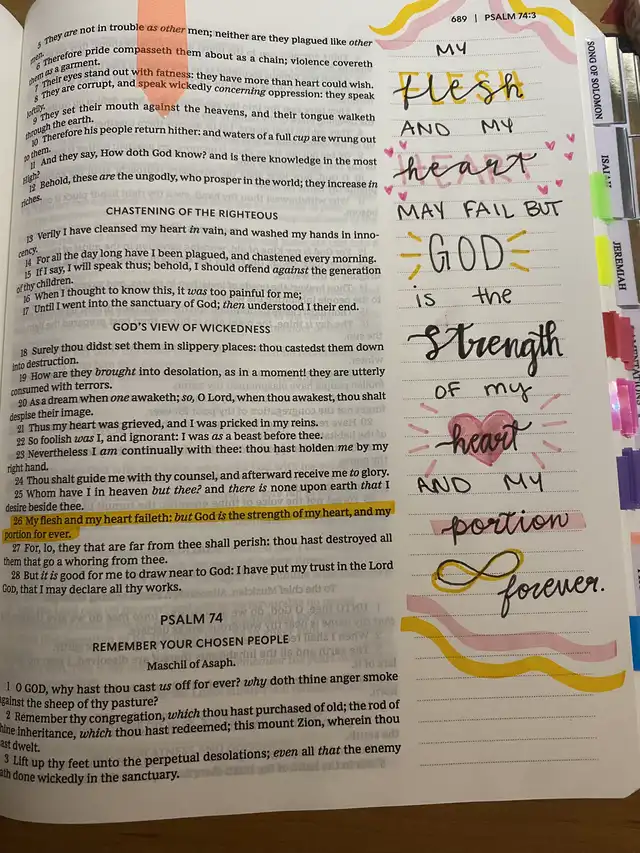 689 | PSALM 74:3
5 They are not in trouble as other men; neither are they plagued like other
men.
6 Therefore pride compasseth them about as a chain; violence covereth
them as a garment.
7 Their eyes stand out with fatness: they have more than heart could wish.
8 They are corrupt, and speak wickedly concerning oppression: they speak
loftily.
9 They set their mouth against the heavens, and their tongue walketh
through the earth.
10 Therefore his people return hither: and waters of a full cup are wrung out
to them.
11 And they say, How doth God know? and is there knowledge in the most
High?
12 Behold, these are the ungodly, who prosper in the world; they increase in
riches.
CHASTENING OF THE RIGHTEOUS
13 Verily I have cleansed my heart in vain, and washed my hands in inno-
cency.
14 For all the day long have I been plagued, and chastened every morning.
15 If I say, I will speak thus; behold, I should offend against the generation
of thy children.
16 When I thought to know this, it was too painful for me;
17 Until I went into the sanctuary of God; then understood I their end.
GOD'S VIEW OF WICKEDNESS
18 Surely thou didst set them in slippery places: thou castedst them down
into destruction.
19 How are they brought into desolation, as in a moment! they are utterly
consumed with terrors.
20 As a dream when one awaketh; so, O Lord, when thou awakest, thou shalt
despise their image.
21 Thus my heart was grieved, and I was pricked in my reins.
22 So foolish was I, and ignorant: I was as a beast before thee.
23 Nevertheless I am continually with thee: thou hast holden me by my
right hand.
24 Thou shalt guide me with thy counsel, and afterward receive me to glory.
25 Whom have I in heaven but thee? and there is none upon earth that I
desire beside thee.
26 My flesh and my heart faileth: but God is the strength of my heart, and my
portion for ever.
27 For, lo, they that are far from thee shall perish: thou hast destroyed all
them that go a whoring from thee.
28 But it is good for me to draw near to God: I have put my trust in the Lord
GOD, that I may declare all thy works.
PSALM 74
REMEMBER YOUR CHOSEN PEOPLE
Maschil of Asaph.
1 O GOD, why hast thou cast us off for ever? why doth thine anger smoke
against the sheep of thy pasture?
2 Remember thy congregation, which thou hast purchased of old; the rod of
hine inheritance, which thou hast redeemed; this mount Zion, wherein thou
ast dwelt.
3 Lift up thy feet unto the perpetual desolations; even all that the enemy
ath done wickedly in the sanctuary.
MY
flesh
AND MY
heart
MAY FAIL BUT
GOD
is the
strength
OF my
heart
AND MY
portion
forever.
SONG OF SOLOMON
ISAIAH
JEREMIAH